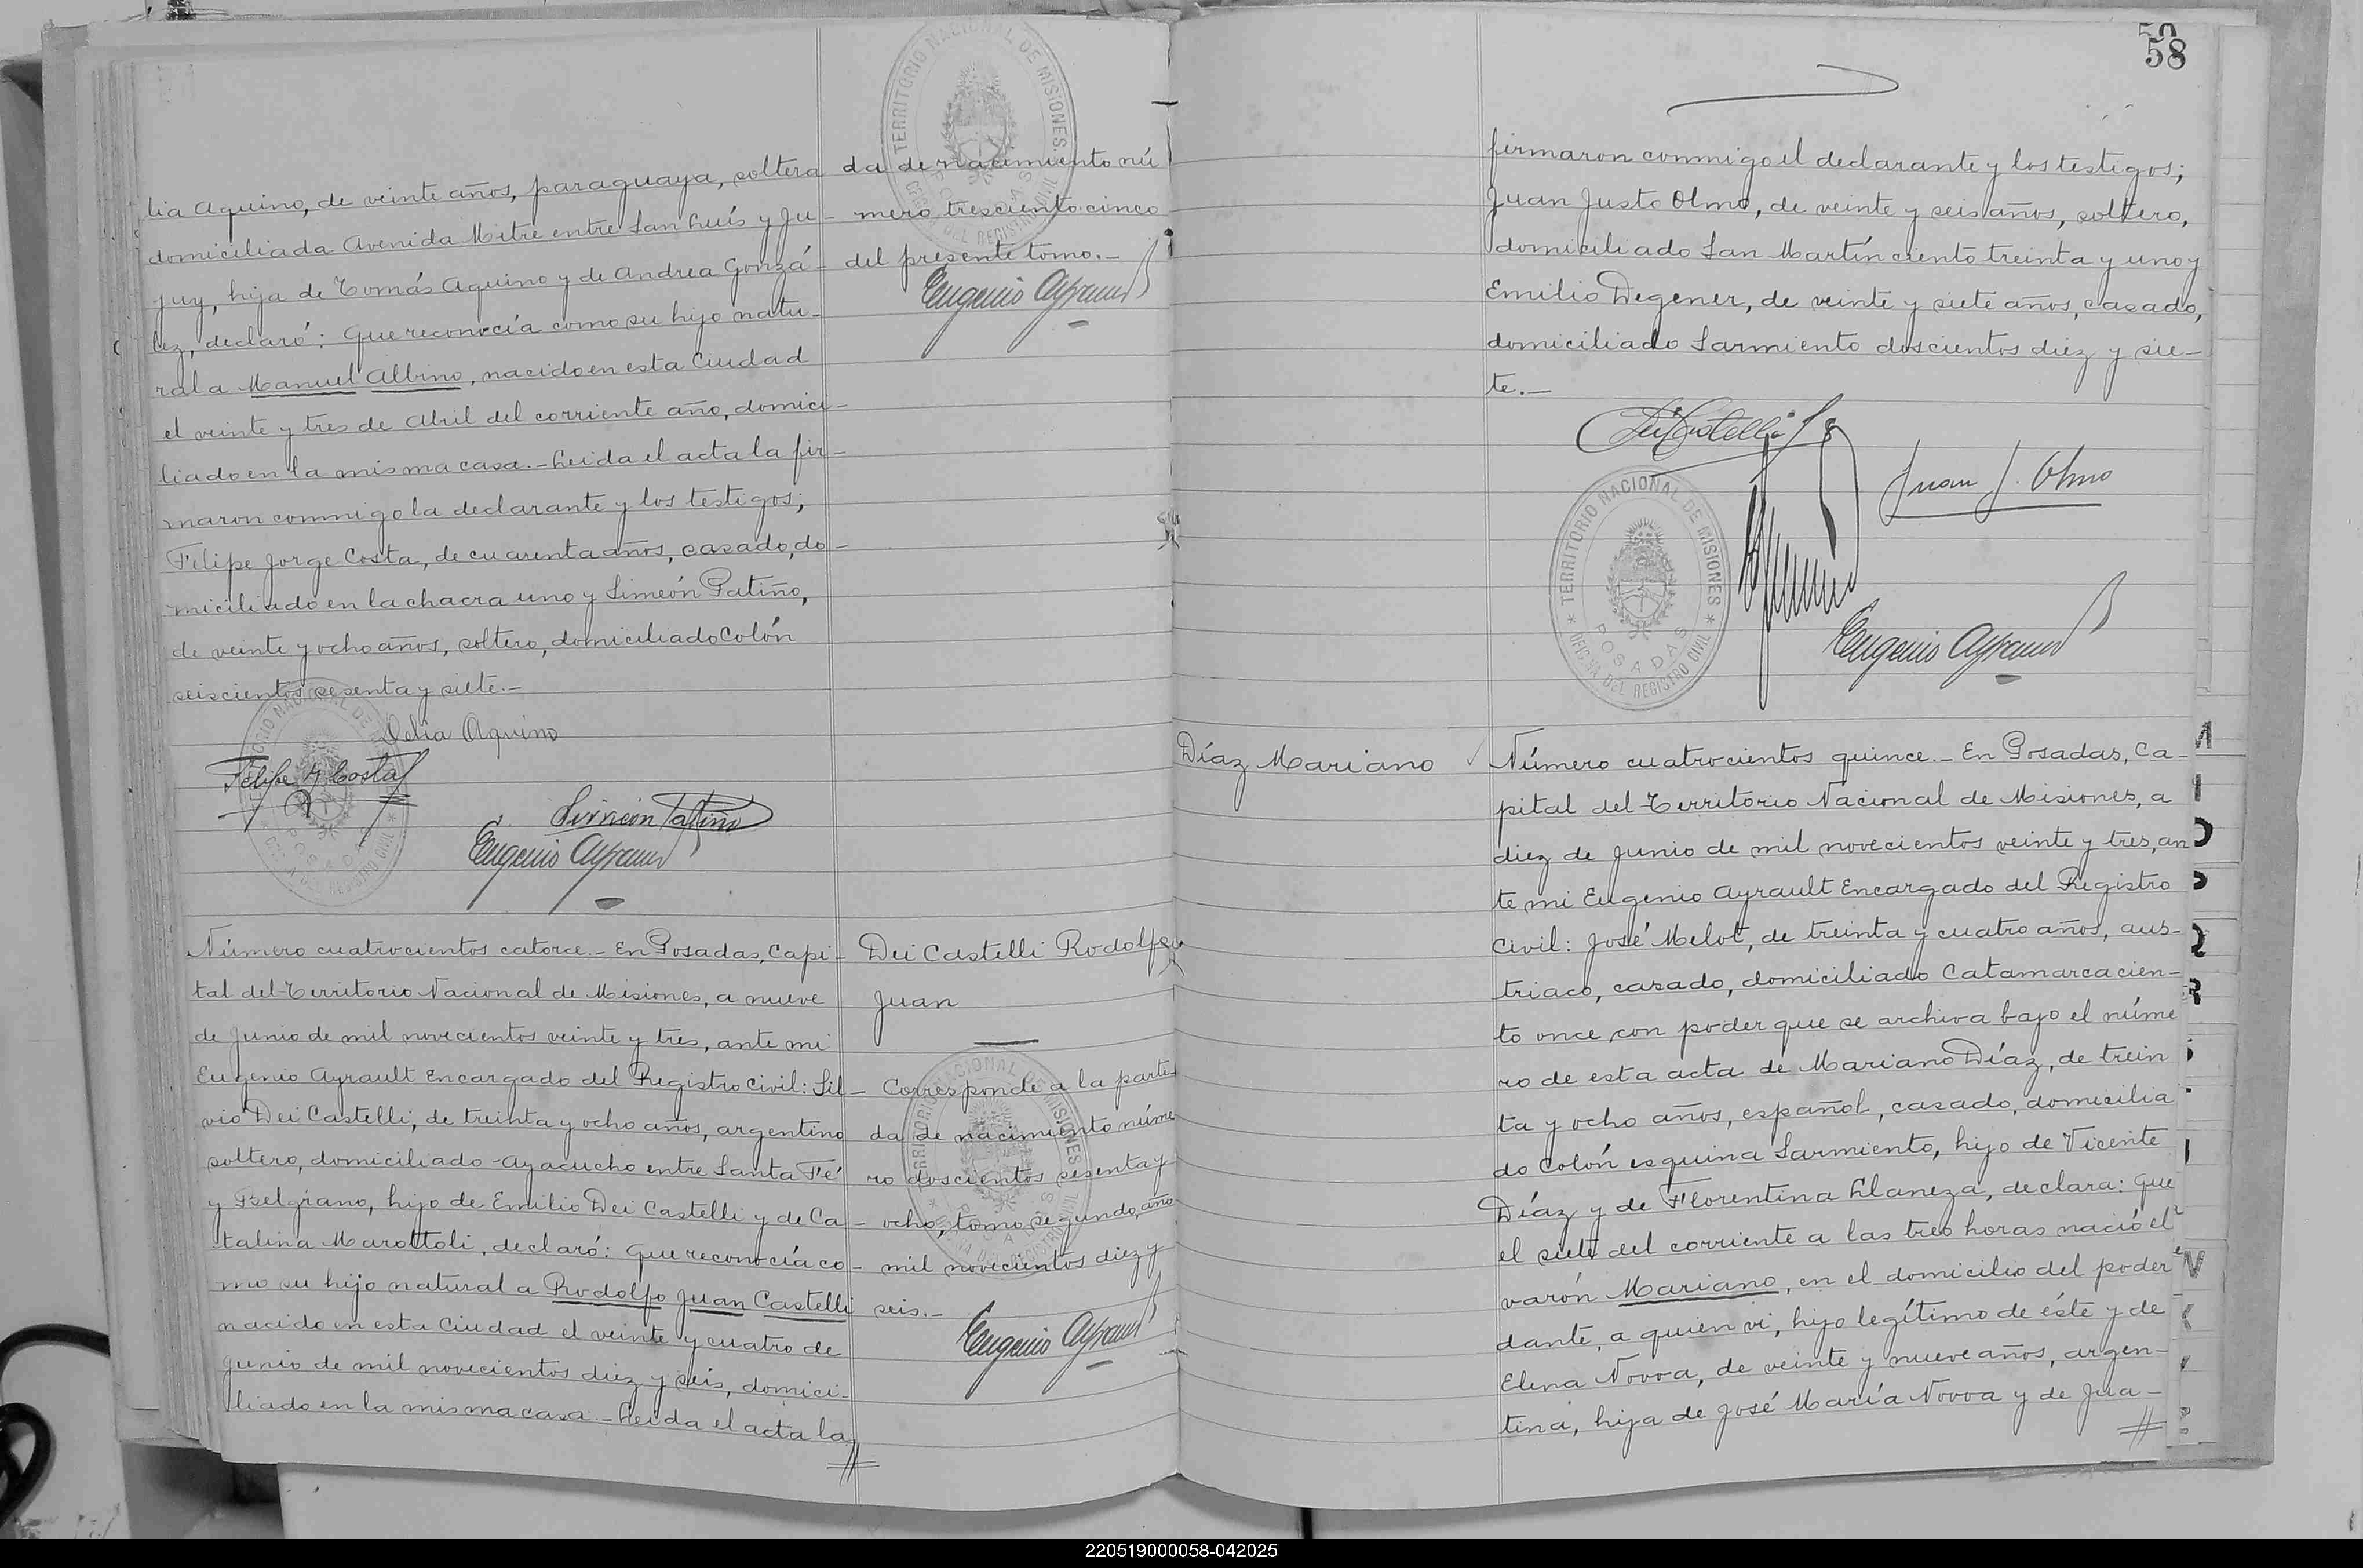 lia Aquino, de veinte años, paraguaya, soltera
domiciliada Avenida Mitre entre San Luís y Ju-
juy, hija de Tomás Aquino y de Andrea Gonzá-
lez, declaró: Que reconocía como su hijo natu-
ral a Manuel Albino, nacido en esta Ciudad
el veinte y tres de Abril del corriente año, domici-
liado en la misma casa.- Leida el acta la fir-
maron conmigo la declarante y los testigos;
Felipe Jorge Costa, de cuarenta años, casado, do-
miciliado en la chacra uno y Simeón Patiño,
de veinte y ocho años, soltero, domiciliado Colón
seiscientos sesenta y siete.-
Delia Aquino
Felipe J Costa
Simeón Patiño
Eugenio Ayrault
da de nacimiento nú
mero tresciento cinco
del presente tomo.-
Eugenio Ayrault
TERRITORIO NACIONAL DE MISIONES
OFICINA DEL REGISTRO CIVIL
POSADAS
Número cuatrocientos catorce.- En Posadas, Capi-
tal del Territorio Nacional de Misiones, a nueve
de Junio de mil novecientos veinte y tres, ante mi
Eugenio Ayrault Encargado del Registro Civil: Sil-
vio Dei Castelli, de treinta y ocho años, argentino
soltero, domiciliado Ayacucho entre Santa Fé
y Belgrano, hijo de Emilio Dei Castelli y de Ca-
talina Marottoli, declaró: Que reconocía co-
mo su hijo natural a Rodolfo Juan Castelli
nacido en esta Ciudad el veinte y cuatro de
Junio de mil novecientos diez y seis, domici-
liado en la misma casa.- Leida el acta la
Dei Castelli Rodolfo
Juan
Corresponde a la parti
da de nacimiento núme
ro doscientos sesenta y
ocho, tomo segundo, año
mil novecientos diez y
seis.-
Eugenio Ayrault
58
firmaron conmigo el declarante y los testigos;
Juan Justo Olmo, de veinte y seis años, soltero,
domiciliado San Martín ciento treinta y uno y
Emilio Degener, de veinte y siete años, casado,
domiciliado Sarmiento doscientos diez y sie-
te.-
Juan J. Olmo
TERRITORIO NACIONAL DE MISIONES
OFICINA DEL REGISTRO CIVIL
POSADAS
Eugenio Ayrault
Díaz Mariano
Número cuatrocientos quince.- En Posadas, Ca-
pital del Territorio Nacional de Misiones, a
diez de Junio de mil novecientos veinte y tres, an
te mi Eugenio Ayrault Encargado del Registro
Civil: José Melot, de treinta y cuatro años, aus-
triaco, casado, domiciliado Catamarca cien-
to once, con poder que se archiva bajo el núme
ro de esta acta de Mariano Díaz, de trein
ta y ocho años, español, casado, domicilia
do Colón esquina Sarmiento, hijo de Vicente
Díaz y de Florentina Llaneza, declara: Que
el siete del corriente a las tres horas nació el
varón Mariano, en el domicilio del poder
dante, a quien vi, hijo legítimo de éste y de
Elena Novoa, de veinte y nueve años, argen-
tina, hija de José María Novoa y de Jua-
220519000058-042025